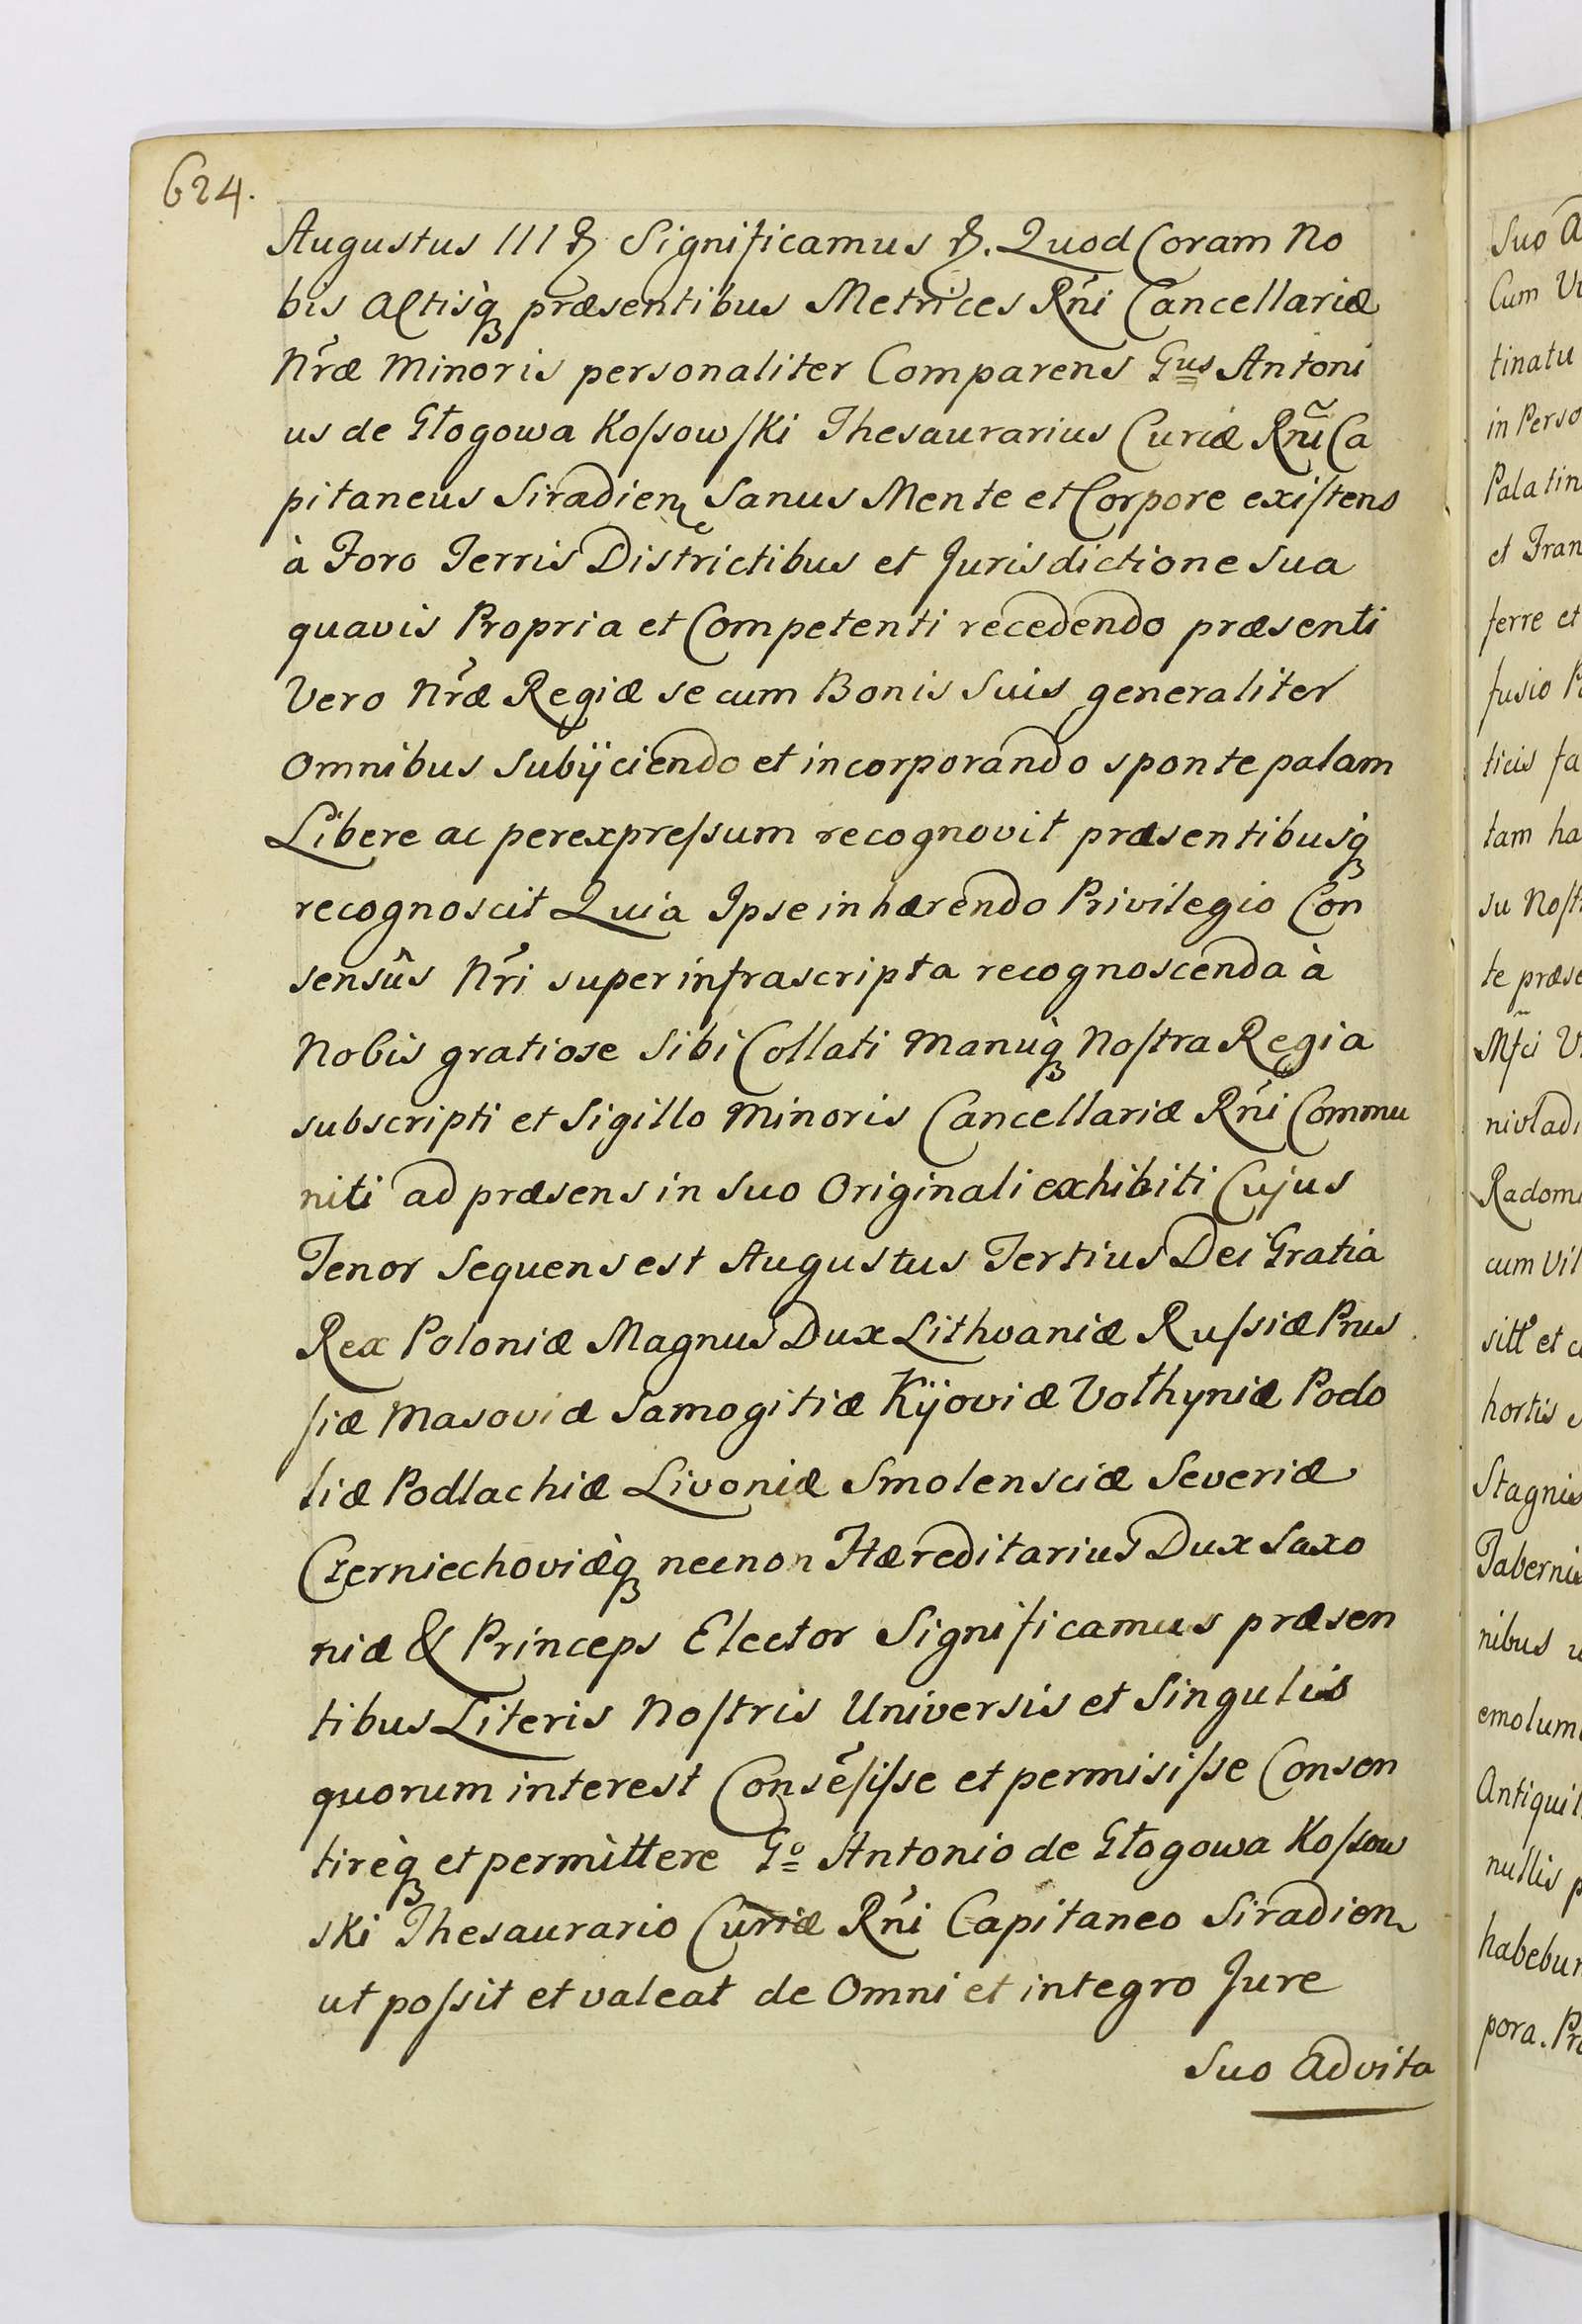 624.
Augustus III &. Significamus &. Quod Coram No
bis Actisq́ꝫ præsentibus Metrices Rńi Cancellariæ
Nr̃æ Minoris personaliter Comparens Gus Antoni
us de Głogowa Koſsowſki Thesaurarius Curiæ Rñi Ca
pitaneus Siradien Sanus Mente et Corpore exiſtens
à Foro Terris Districtibus et Jurisdictione Sua
quavis Propria et Competenti recedendo præsenti
Vero Nr̃æ Regiæ se cum Bonis Suis generaliter
Omnibus Subijciendo et incorporando sponte palam
Libere ac per expreſsum recognovit præsentibusq́ꝫ
recognoscit Quia Ipse inhærendo Privilegio Con
sensûs Nr̃i super infrascripta recognoscenda à
Nobis gratiose Sibi Collati Manuq́ꝫ Noſtra Regia
subscripti et Sigillo Minoris Cancellariæ Rńi Commu
niti ad præsens in Suo Originali exhibiti Cujus
Tenor Sequens est Augustus Tertius Dei Gratia
Rex Poloniæ Magnus Dux Lithvaniæ Ruſsiæ Prus
ſiæ Masoviæ Samogitiæ Kijoviæ Vołhyniæ Podo
liæ Podlachiæ Livoniæ Smolensciæ Severiæ
Czerniechoviæq́ꝫ necnon Hæreditarius Dux Saxo
niæ & Princeps Elector Significamus præsen
tibus Literis Noſtris Universis et Singulis
quorum interest Consẽſiſse et permisiſse Consen
tireq́ꝫ et permittere Go Antonio de Głogowa Koſsow
ski Thesaurario Curiæ Rńi Capitaneo Siradien
ut poſsit et valeat de Omni et integro Jure
Suo Advita
Suo A
Cum Vi
tinatu
in Perso
Palatin
et Fran
ferre et
fusio
ticis fa
tam ha
su Noſt
te præse
Mſci V
nivladi
Radom
cum Vil
sitt et
hortis
Stagnis
Tabernis
nibus
emolum
Antiquit
nullis p
habebun
pora. Pr